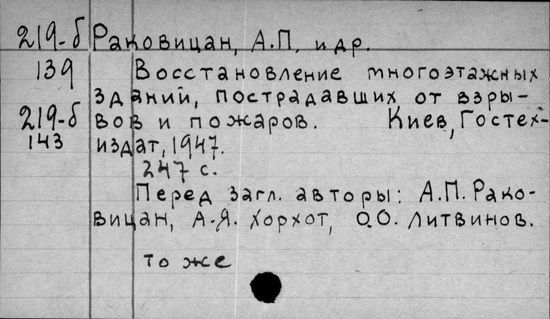 219-б Раковицан, А.П. и др.
139 Восстановление многоэтажных
зданий, пострадавших от взры-
219-б вов и пожаров. Киев, Гостех-
143 издат, 1947.
247 с.
Перед загл. авторы: А.П. Рако-
вицан, А.Я. Хорхот, О.О. Литвинов.
то же